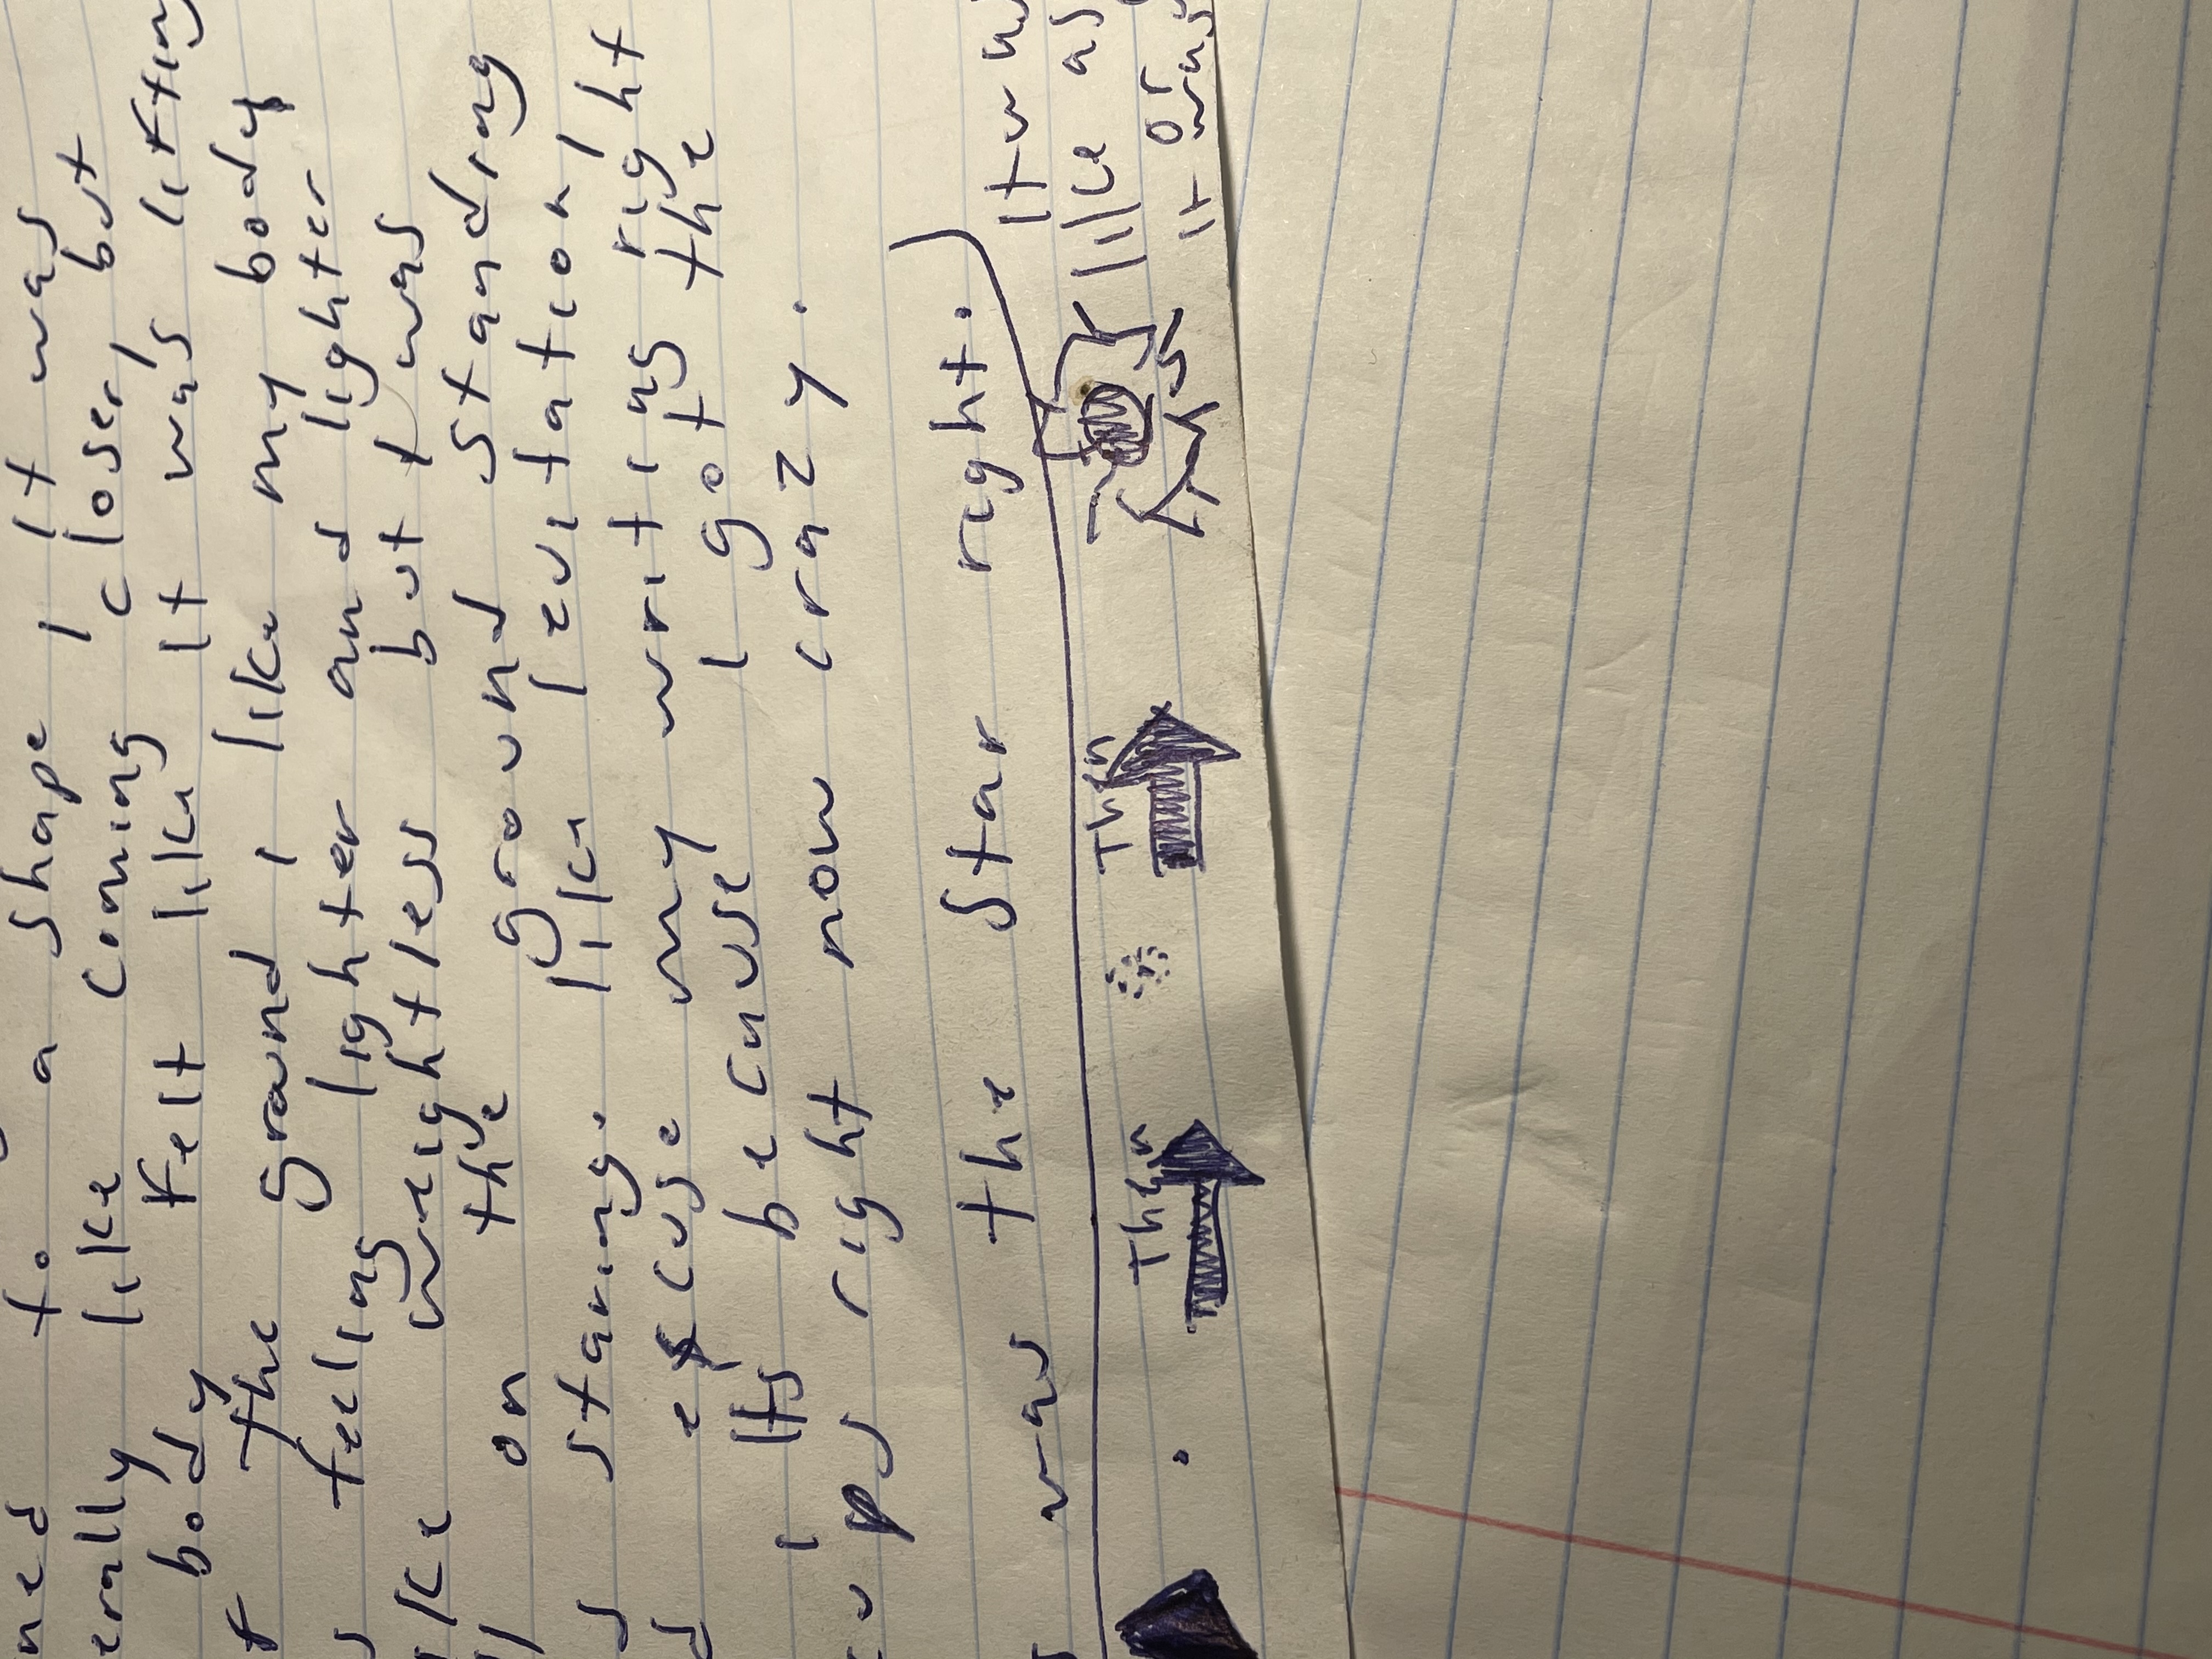 ned to a shape, it was
erally like coming closer, but
body Felt like It was lifting
f the ground, like my body
s feeling lighter and lighter
ike weightless but I was
ll on the ground standing
d staring. like levitation,
d excuse my writing right
, Its because I got the
cups right now crazy.
s was the Star right.
Then
Then
It was
like as
or
it was